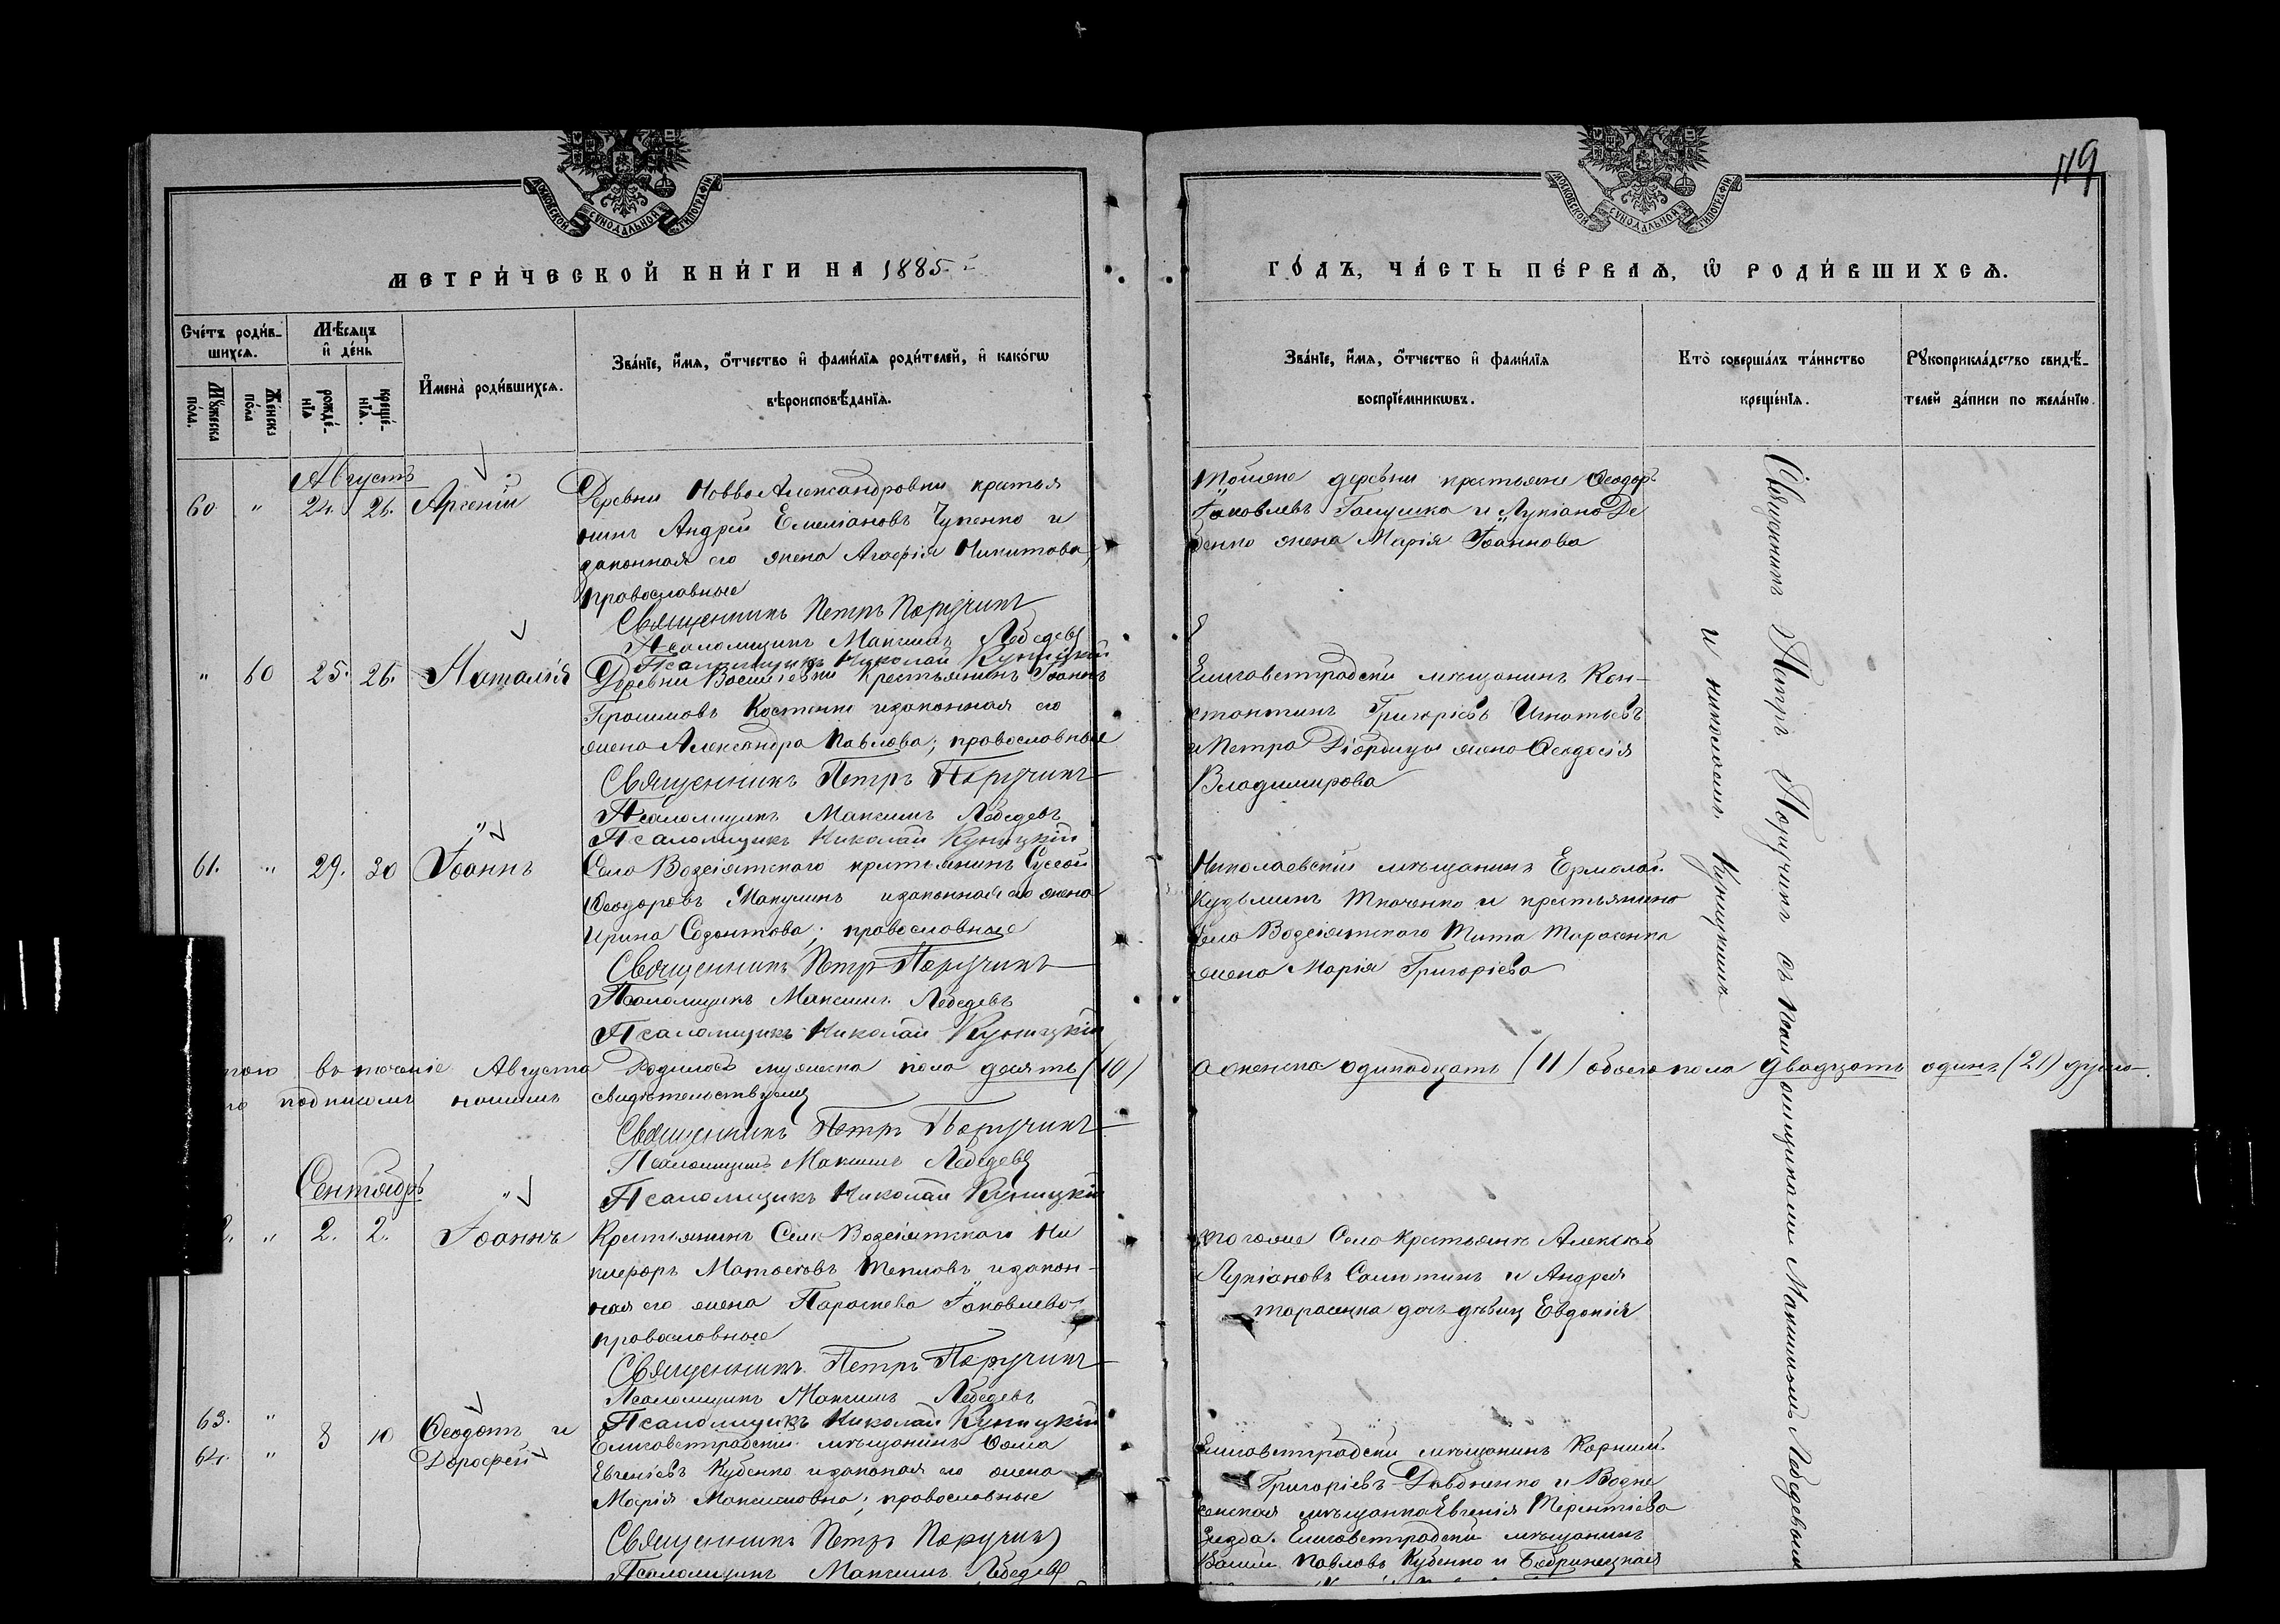 119
МОСКОВСКОЙ СѴНОДАЛЬНОЙ ТИПОГРАФІИ
МОСКОВСКОЙ СѴНОДАЛЬНОЙ ТИПОГРАФІИ
МЕТРИ́ЧЕСКОЙ КНИ́ГИ НА 1885
ГО́ДЪ, ЧА́СТЬ ПЕ́РВАѦ, Ѡ҆ РОДИ́ВШИХСѦ.
Сче́тъ роди́в-
шихсѧ.
Мѣ́сѧцъ
и҆ де́нь
Мꙋ́жеска по́ла.
Же́нска по́ла
рожде́-нїѧ
креще́-нїѧ.
И҆мена̀ роди́вшихсѧ.
Зва́нїе, и҆́мѧ, ѻ҆́тчество и҆ фами́лїѧ роди́телей, и҆ како́гѡ
вѣроисповѣ́данїѧ.
Зва́нїе, и҆́мѧ, ѻ҆́тчество и҆ фами́лїѧ
воспрїе́мникѡвъ.
Кто̀ соверша́лъ та́инство
креще́нїѧ.
Рꙋкоприкла́дство свидѣ́-
телей за́писи по жела́нїю.
Августъ
60 " 24. 26. Арсеній
Деревни НоввоАлександровки кресть
янинъ Андрей Емеліановъ Чупенко и
законная его жена Агафія Никитова,
православные
Священникъ Петръ Поручинъ
Псаломщикъ Максимъ Лебедевъ
Псаломщикъ Николай Куницкій
тойже деревни крестьяне Ѳеодоръ
Іаковлевъ Галушка и Лукіана Де
женка Марія Іоаннова
" 60 25. 26. Наталія
Деревни Василіевки крестьянинъ Іоаннъ
Герасимовъ Костенко изаконная его
жена Александра Павлова; православные
Священникъ Петръ Поручинъ
Псаломщикъ Максимъ Лебедевъ
Псаломщикъ Николай Куницкій
Елисаветградскій мѣщанинъ Кон-
стантинъ Григоріевъ Игнатьевъ
и Петра жена Ѳеодосія
Владимирова
61. " 29. 30 Іоаннъ
Села Возсіятского крестьянинъ Сысой
Ѳеодоровъ Макулинъ изаконная его жена
Ирина Созонтова; православные
Священникъ Петръ Поручинъ
Псаломщикъ Максимъ Лебедевъ
Псаломщикъ Николай Куницкій
Николаевскій мѣщанинъ Ермолай
Кузьминъ Ткаченко и крестьянина
села Возсіятского Тита Тарасенка
жена Марія Григоріева
въ теченіе Августа Родилось мужеска пола десять (10)
а женска одинадцать (11) обоего пола двадцать одинъ (21) душа.
подписомъ нашимъ свидѣтельствуемъ
Священникъ Петръ Поручинъ
Псаломщикъ Максимъ Лебедевъ
Псаломщикъ Николай Куницкій
Сентябрь
2. " 2. 2. Іоаннъ
Крестьянинъ Села Возсіятского Ни
кифоръ Матѳеевъ Тепловъ изакон-
ная его жена Параскева Іаковлева
православные
Священникъ Петръ Поручинъ
Псаломщикъ Максимъ Лебедевъ
Псаломщикъ Николай Куницкій
тогоже Села Крестьяне Алексѣй
Лукіановъ Салютинъ и Андрея
тарасенка дочь дѣвица Евдокія
63. "
64. " 8 10 Ѳеодотъ и
Дороѳей
Елисаветградскій мѣщанинъ Ѳома
Евгеніевъ Кубенко изаконая его жена
Марія Максимовна; православные
Священникъ Петръ Поручинъ
Псаломщикъ Максимъ Лебедевъ
Елисаветградскій мѣщанинъ Корнилій
Григоріевъ Давбненко и Возне
сенская мѣщанка Евгенія Терентіева
Елисаветградскій мѣщанинъ
Павловъ Кубенко и Бобринецкая
Священникъ Петръ Поручинъ съ псаломщиками Максимомъ Лебедевымъ
и николаемъ Куницкимъ